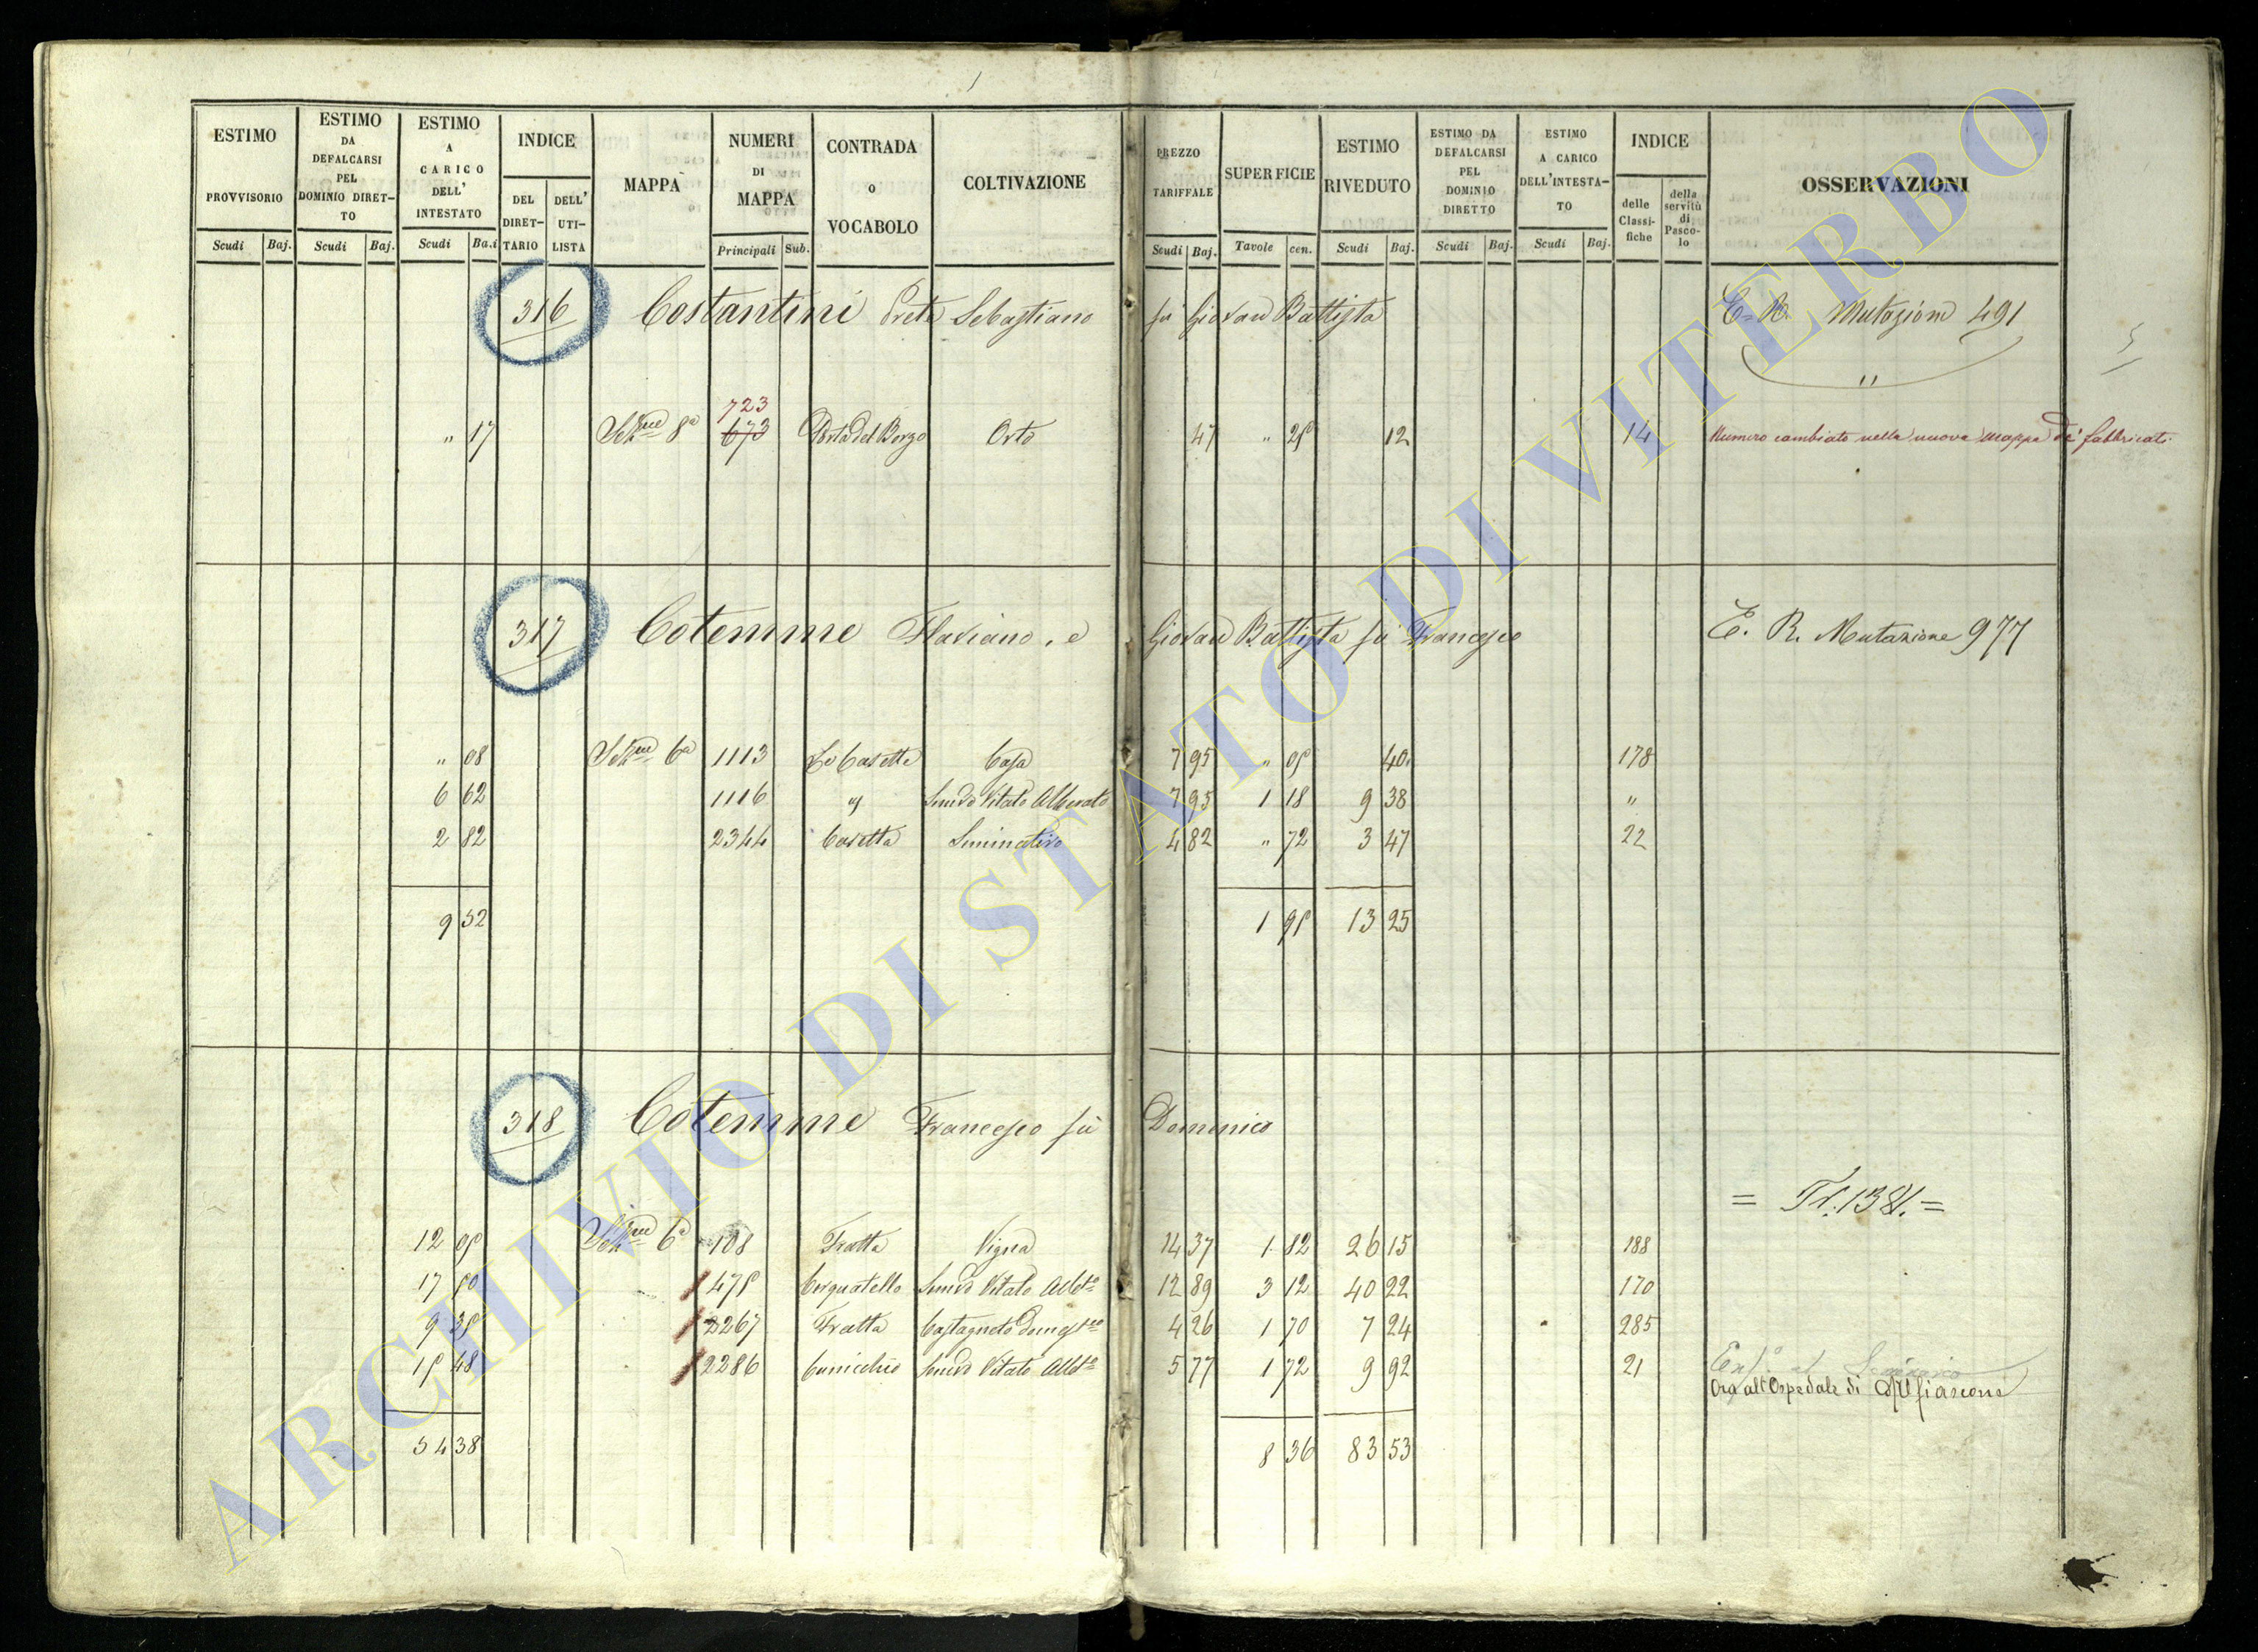 ESTIMO PROVVISORIO
Scudi Baj.
ESTIMO DA DEFALCARSI PEL DOMINIO DIRET-TO
Scudi Baj.
ESTIMO A CARICO DELL' INTESTATO
Scudi Ba.i
INDICE
DEL DIRET-TARIO
DELL' UTI-LISTA
MAPPA
NUMERI DI MAPPA
Principali Sub.
CONTRADA o VOCABOLO
COLTIVAZIONE
PREZZO TARIFFALE
Scudi Baj.
SUPERFICIE
Tavole cen.
ESTIMO RIVEDUTO
Scudi Baj.
ESTIMO DA DEFALCARSI PEL DOMINIO DIRETTO
Scudi Baj.
ESTIMO A CARICO DELL'INTESTA-TO
Scudi Baj.
INDICE
delle Classi-fiche
della servitù di Pasco-lo
OSSERVAZIONI
316 Costantini Prete Sebastiano fù Giovan Battista E. R. Mutazioni 491
"
723
" 17 Sezne 8a 673 Porta del Borgo Orto 47 " 25 12 14 Numero cambiato nella nuova Mappa de' fabbricati
317 Cotemme Flaviano, e Giovan Battista fù Francesco E. R. Mutazione 977
" 08 Sezne 6a 1113 Le Casette Casa 7 95 " 05 40 178
6 62 1116 Semivo Vitato Alberato 7 95 1 18 9 38 "
2 82 2344 Casetta Seminativo 4 82 " 72 3 47 22
9 52 1 95 13 25
318 Cotemme Francesco fù Domenico
12 05 Sezne 6a 108 Fratta Vigna 14 37 1 82 26 15 188
17 50 475 Cerquatello Semivo Vitato Albto 12 89 3 12 40 22 170
9 35 2267 Fratta Castagneto domestco 4 26 1 70 7 24 285
15 48 2286 Cunicchio Semivo Vitato Albto 5 77 1 72 9 92 21
Ora all'Ospedale di
54 38 8 36 83 53
ARCHIVIO DI STATO DI VITERBO